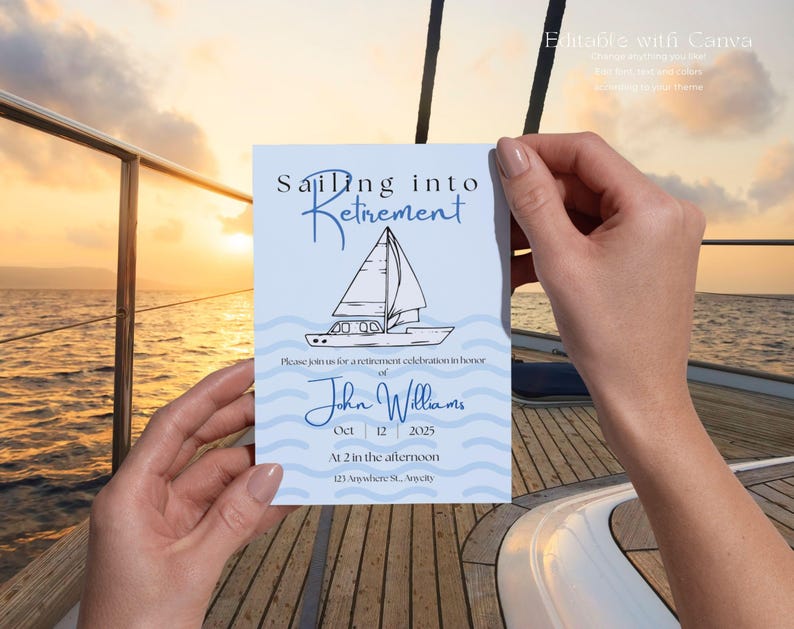 Editable with Canva
Change anything you like!
Edit font, text and colors
according to your theme
Sailing into
Retirement
Please join us for a retirement celebration in honor
of
John Williams
Oct | 12 | 2025
At 2 in the afternoon
123 Anywhere St., Anycity